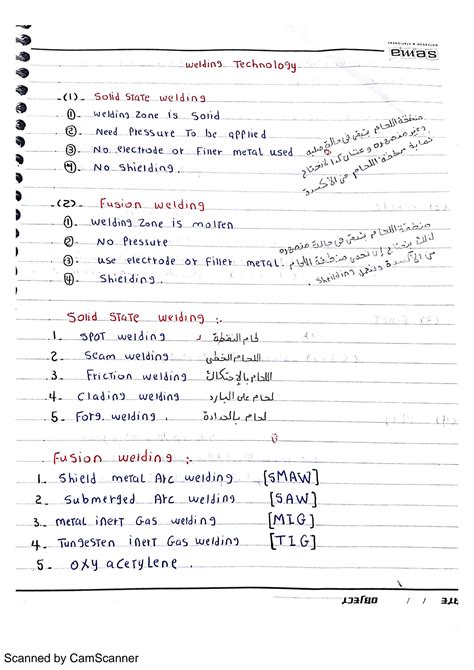 sema
Welding Technology
-(1)- Solid State welding
①- welding Zone is Solid
②- Need Pressure To be applied
③- No electrode or Filler metal used
④- No Shielding.
منطقة اللحام بتبقى فى حالة صلبه
وغير منصهره وعشان كدا لا تحتاج
حماية منطقة اللحام من الأكسدة
-(2)- Fusion welding
①- welding Zone is molten
②- No Pressure
③- use electrode or Filler metal.
④- Shielding.
منطقة اللحام بتبقى فى حالة منصهره
منطقة اللحام
من الأكسدة
Shielding
Solid State welding :-
1- SPOT welding لحام النقطة
2- Seam welding اللحام الخطى
3- Friction welding اللحام بالإحتكاك
4- Clading welding لحام على البارد
5- Forg. welding. لحام بالحدادة
Fusion welding :-
1- Shield metal Arc welding [SMAW]
2- Submerged Arc welding [SAW]
3- metal inert Gas welding [MIG]
4- Tungesten inert Gas welding [TIG]
5- Oxy acetylene.
Scanned by CamScanner